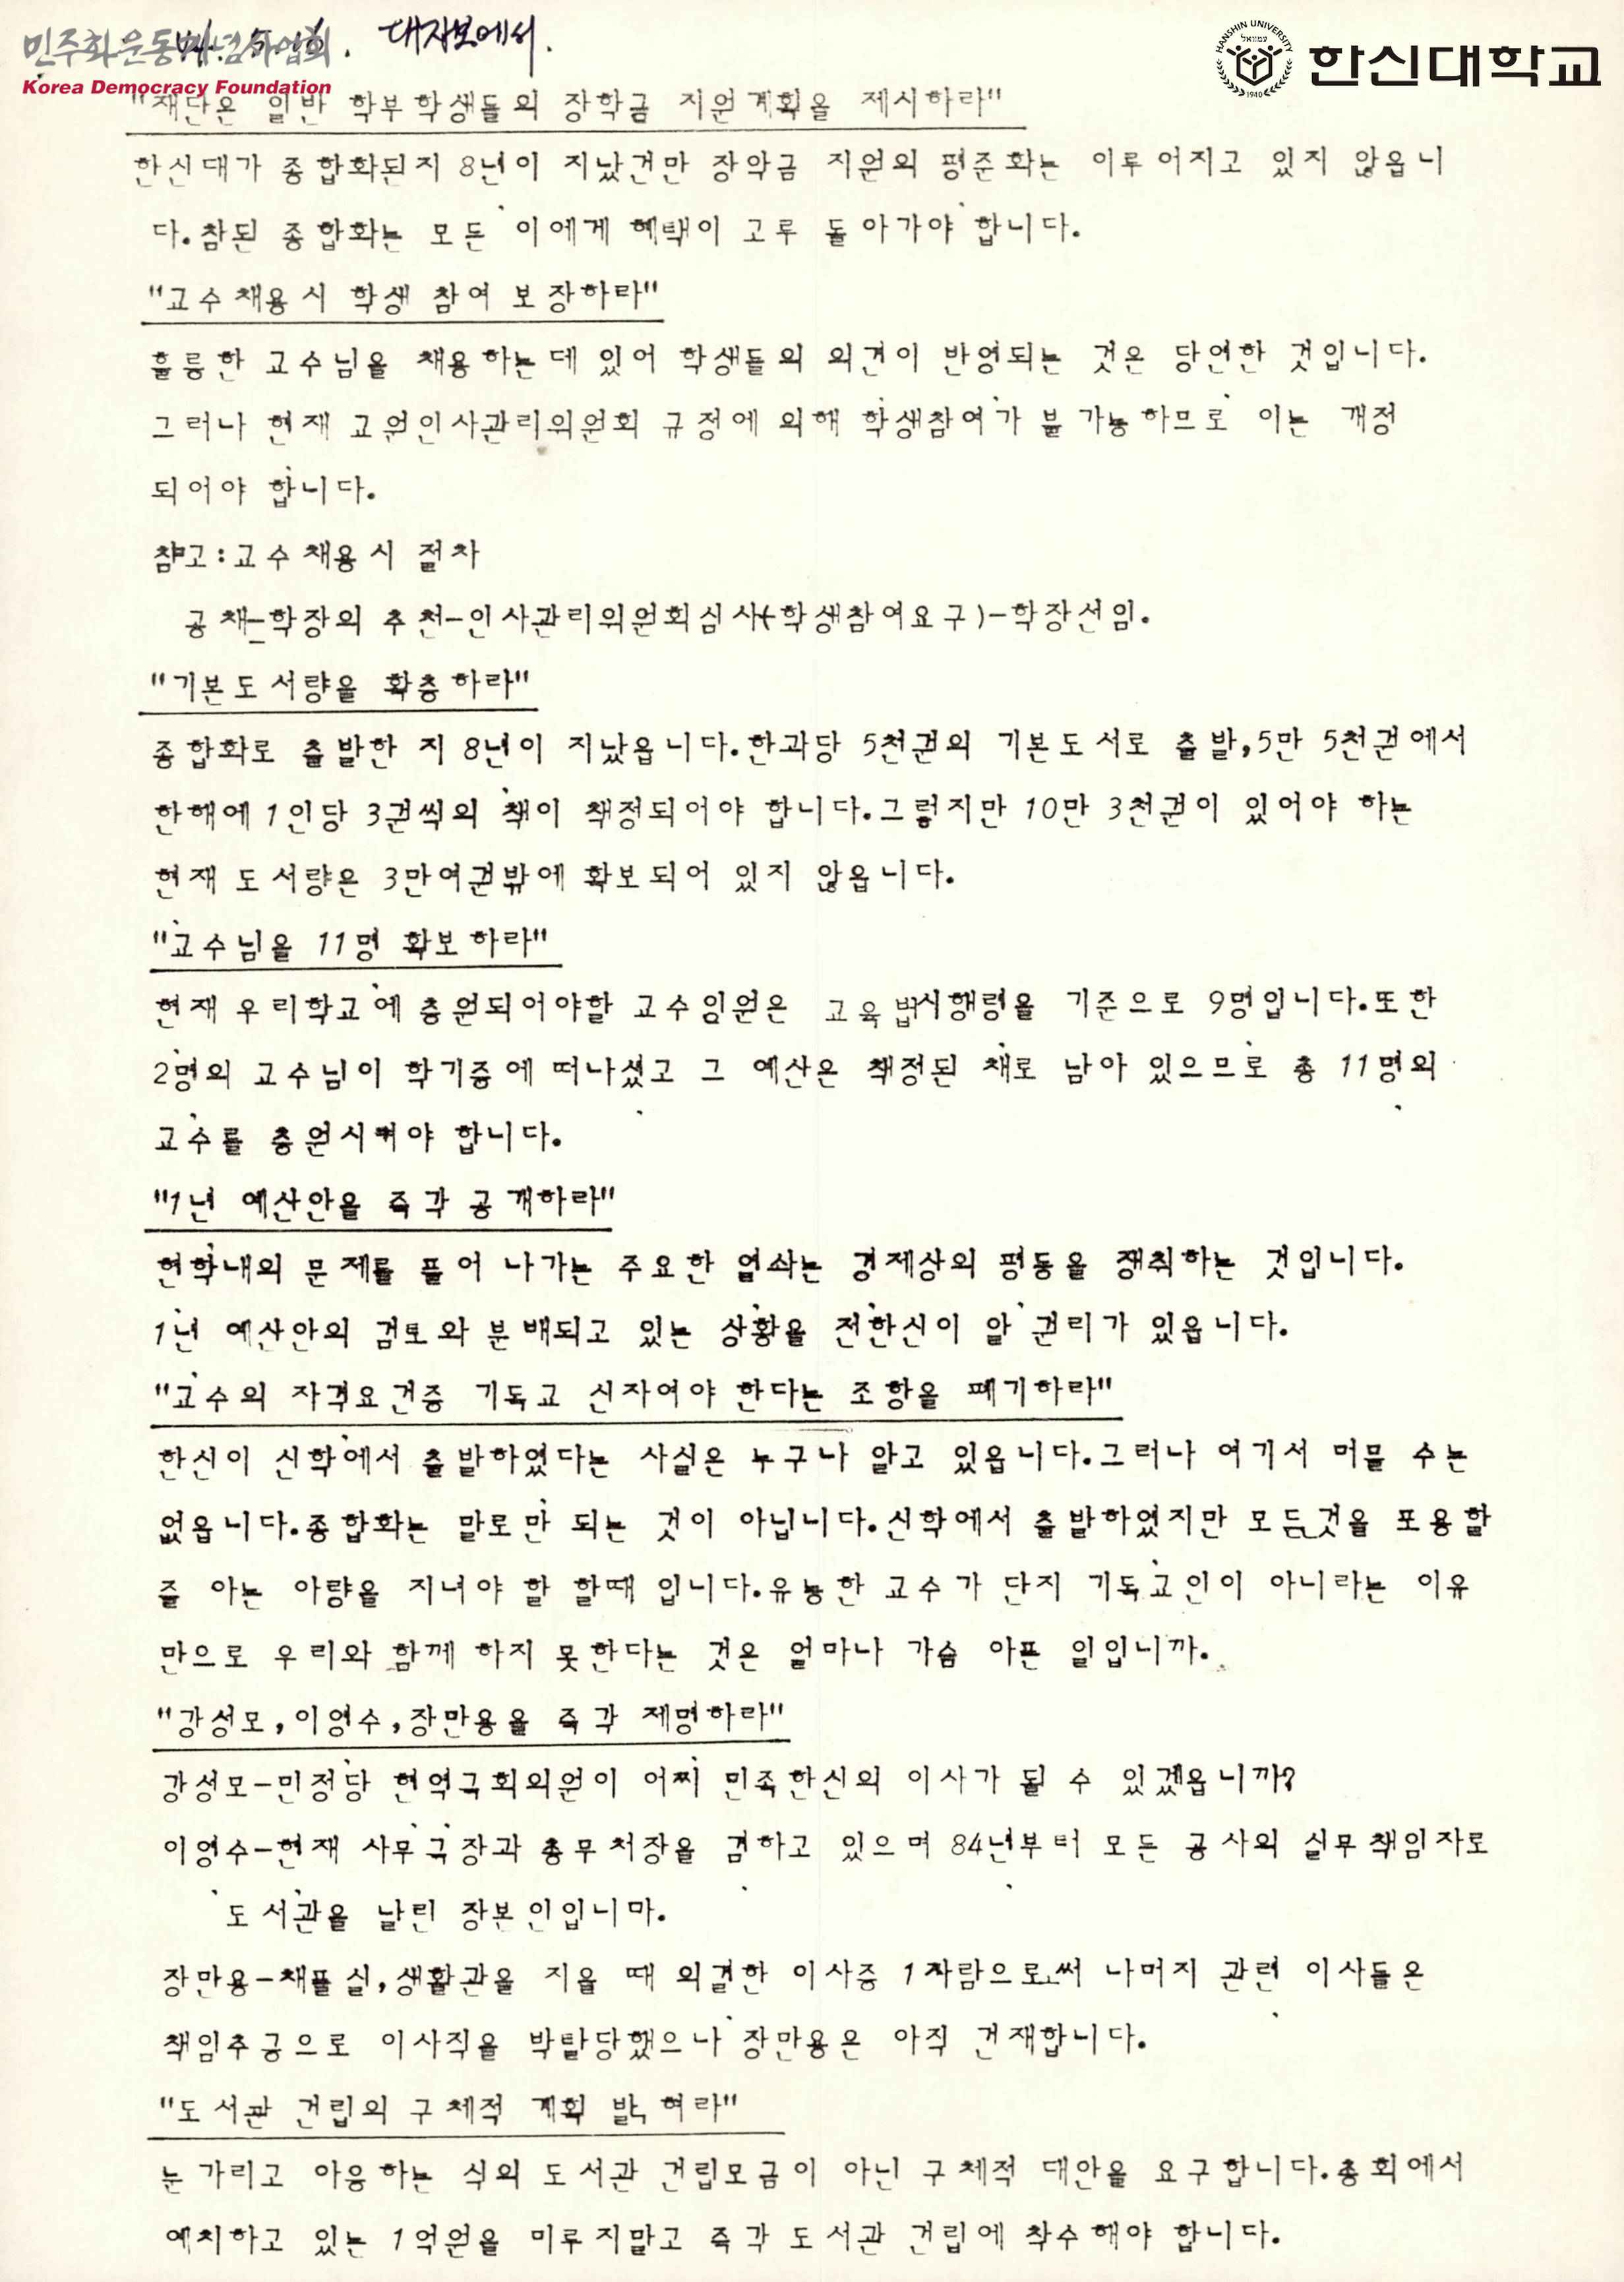 민주화운동기념사업회
대자보에서.
Korea Democracy Foundation
HANSHIN UNIVERSITY
1940
한신대학교
"재단은 일반 학부학생들의 장학금 지원계획을 제시하라"
한신대가 종합화된지 8년이 지났건만 장학금 지원의 평준화는 이루어지고 있지 않읍니
다.참된 종합화는 모든 이에게 혜택이 고루 돌아가야 합니다.
"교수채용시 학생 참여 보장하라"
훌륭한 교수님을 채용하는데 있어 학생들의 의견이 반영되는 것은 당연한 것입니다.
그러나 현재 교원인사관리위원회 규정에 의해 학생참여가 불가능하므로 이는 개정
되어야 합니다.
참고:교수채용시 절차
공채-학장의 추천-인사관리위원회심사(학생참여요구)-학장선임.
"기본도서량을 확충하라"
종합화로 출발한 지 8년이 지났읍니다.한과당 5천권의 기본도서로 출발,5만 5천권에서
한해에 1인당 3권씩의 책이 책정되어야 합니다.그렇지만 10만 3천권이 있어야 하는
현재 도서량은 3만여권밖에 확보되어 있지 않읍니다.
"교수님을 11명 확보하라"
현재 우리학교에 충원되어야할 교수임원은 교육법시행령을 기준으로 9명입니다.또한
2명의 교수님이 학기중에 떠나셨고 그 예산은 책정된 채로 남아 있으므로 총 11명의
교수를 충원시켜야 합니다.
"1년 예산안을 즉각 공개하라"
현학내의 문제를 풀어 나가는 주요한 열쇠는 경제상의 평등을 쟁취하는 것입니다.
1년 예산안의 검토와 분배되고 있는 상황을 전한신이 알 권리가 있읍니다.
"교수의 자격요건중 기독교 신자여야 한다는 조항을 폐기하라"
한신이 신학에서 출발하였다는 사실은 누구나 알고 있읍니다.그러나 여기서 머물 수는
없읍니다.종합화는 말로만 되는 것이 아닙니다.신학에서 출발하였지만 모든것을 포용할
줄 아는 아량을 지녀야 할 할때 입니다.유능한 교수가 단지 기독교인이 아니라는 이유
만으로 우리와 함께 하지 못한다는 것은 얼마나 가슴 아픈 일입니까.
"강성모,이영수,장만용을 즉각 제명하라"
강성모-민정당 현역국회의원이 어찌 민족한신의 이사가 될 수 있겠읍니까?
이영수-현재 사무국장과 총무처장을 겸하고 있으며 84년부터 모든 공사의 실무책임자로
도서관을 날린 장본인입니마.
장만용-채플실,생활관을 지을 때 의결한 이사중 1사람으로써 나머지 관련 이사들은
책임추궁으로 이사직을 박탈당했으나 장만용은 아직 건재합니다.
"도서관 건립의 구체적 계획 밝혀라"
눈가리고 아웅하는 식의 도서관 건립모금이 아닌 구체적 대안을 요구합니다.총회에서
예치하고 있는 1억원을 미루지말고 즉각 도서관 건립에 착수해야 합니다.